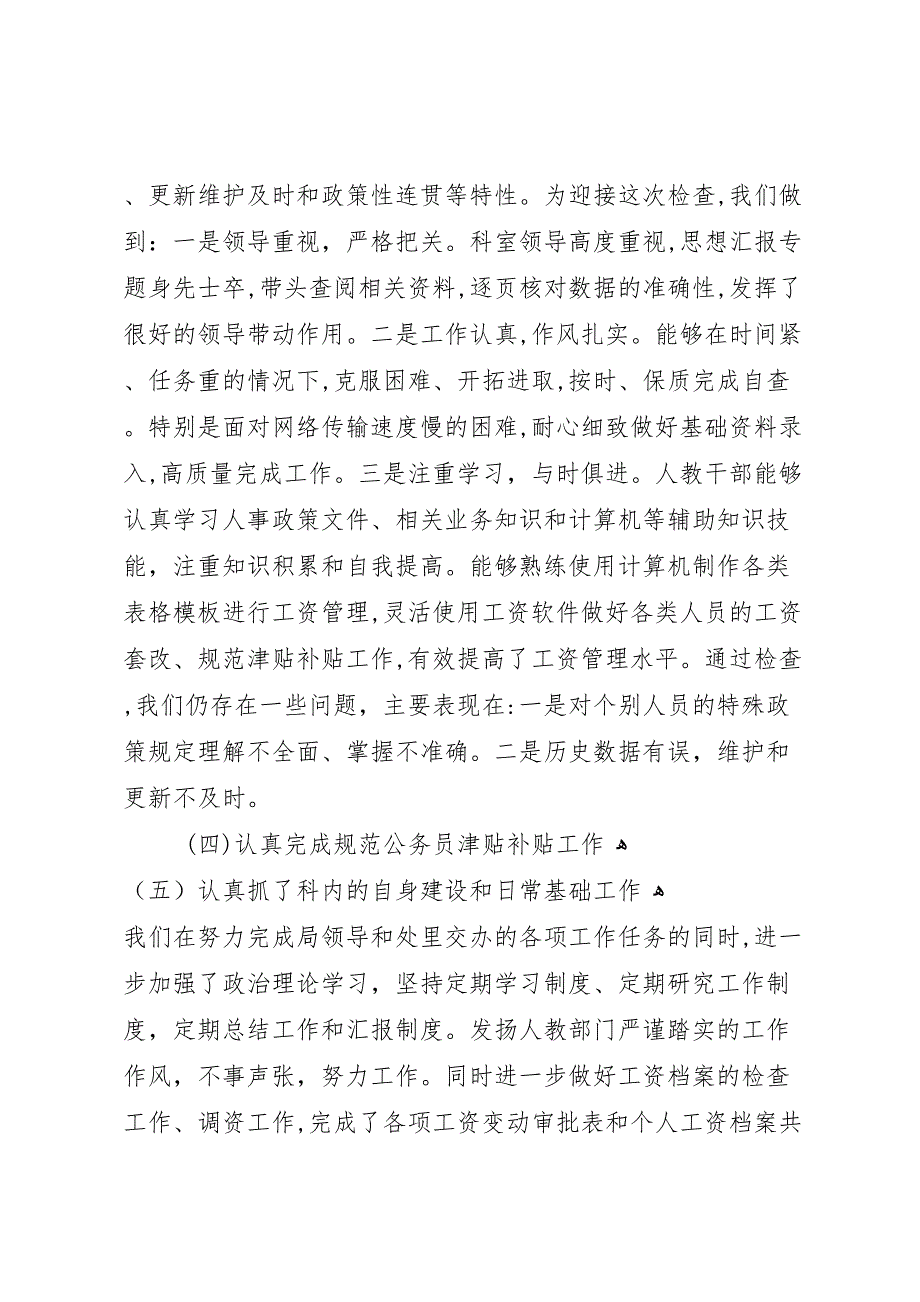 、更新维护及时和政策性连贯等特性。为迎接这次检查,我们做
到：一是领导重视，严格把关。科室领导高度重视,思想汇报专
题身先士卒,带头查阅相关资料,逐页核对数据的准确性,发挥了
很好的领导带动作用。二是工作认真,作风扎实。能够在时间紧
、任务重的情况下,克服困难、开拓进取,按时、保质完成自查
。特别是面对网络传输速度慢的困难,耐心细致做好基础资料录
入,高质量完成工作。三是注重学习，与时俱进。人教干部能够
认真学习人事政策文件、相关业务知识和计算机等辅助知识技
能，注重知识积累和自我提高。能够熟练使用计算机制作各类
表格模板进行工资管理,灵活使用工资软件做好各类人员的工资
套改、规范津贴补贴工作,有效提高了工资管理水平。通过检查
,我们仍存在一些问题，主要表现在:一是对个别人员的特殊政
策规定理解不全面、掌握不准确。二是历史数据有误，维护和
更新不及时。
(四)认真完成规范公务员津贴补贴工作ﻫ
（五）认真抓了科内的自身建设和日常基础工作ﻫ
我们在努力完成局领导和处里交办的各项工作任务的同时,进一
步加强了政治理论学习，坚持定期学习制度、定期研究工作制
度，定期总结工作和汇报制度。发扬人教部门严谨踏实的工作
作风，不事声张，努力工作。同时进一步做好工资档案的检查
工作、调资工作,完成了各项工资变动审批表和个人工资档案共